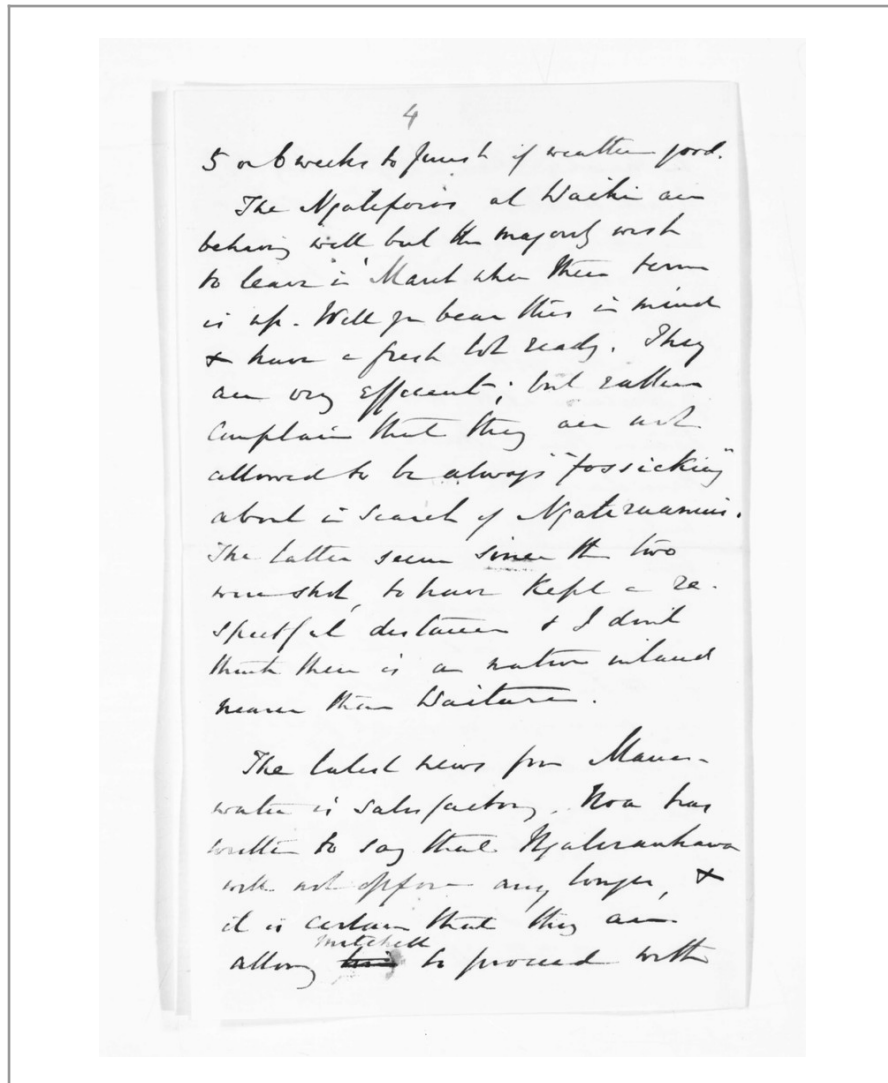 4
5 or 6 weeks to finish if weather good.
The Ngatiporous at Waihi are
behaving well but the majority wish
to leave in March when their term
is up. Will you bear this in mind
& have a fresh lot ready. They
are very efficient; but rather
complain that they are not
allowed to be always "fossicking"
about in search of Ngatiruanuis.
The latter seem since the two
were shot, to have kept a re-
spectful distance & I don't
think there is a native inland
nearer than Waitara.
The latest news from Mana-
watu is satisfactory. Noa has
written to say that Ngatiraukawa
will not oppose any longer, &
it is certain that they are
mitchell
allowing to proceed with